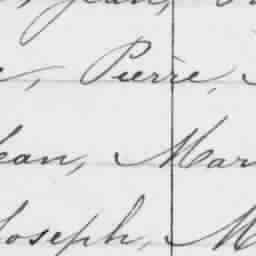 Jean,
Pierre,
Jean, Mar
Joseph, M